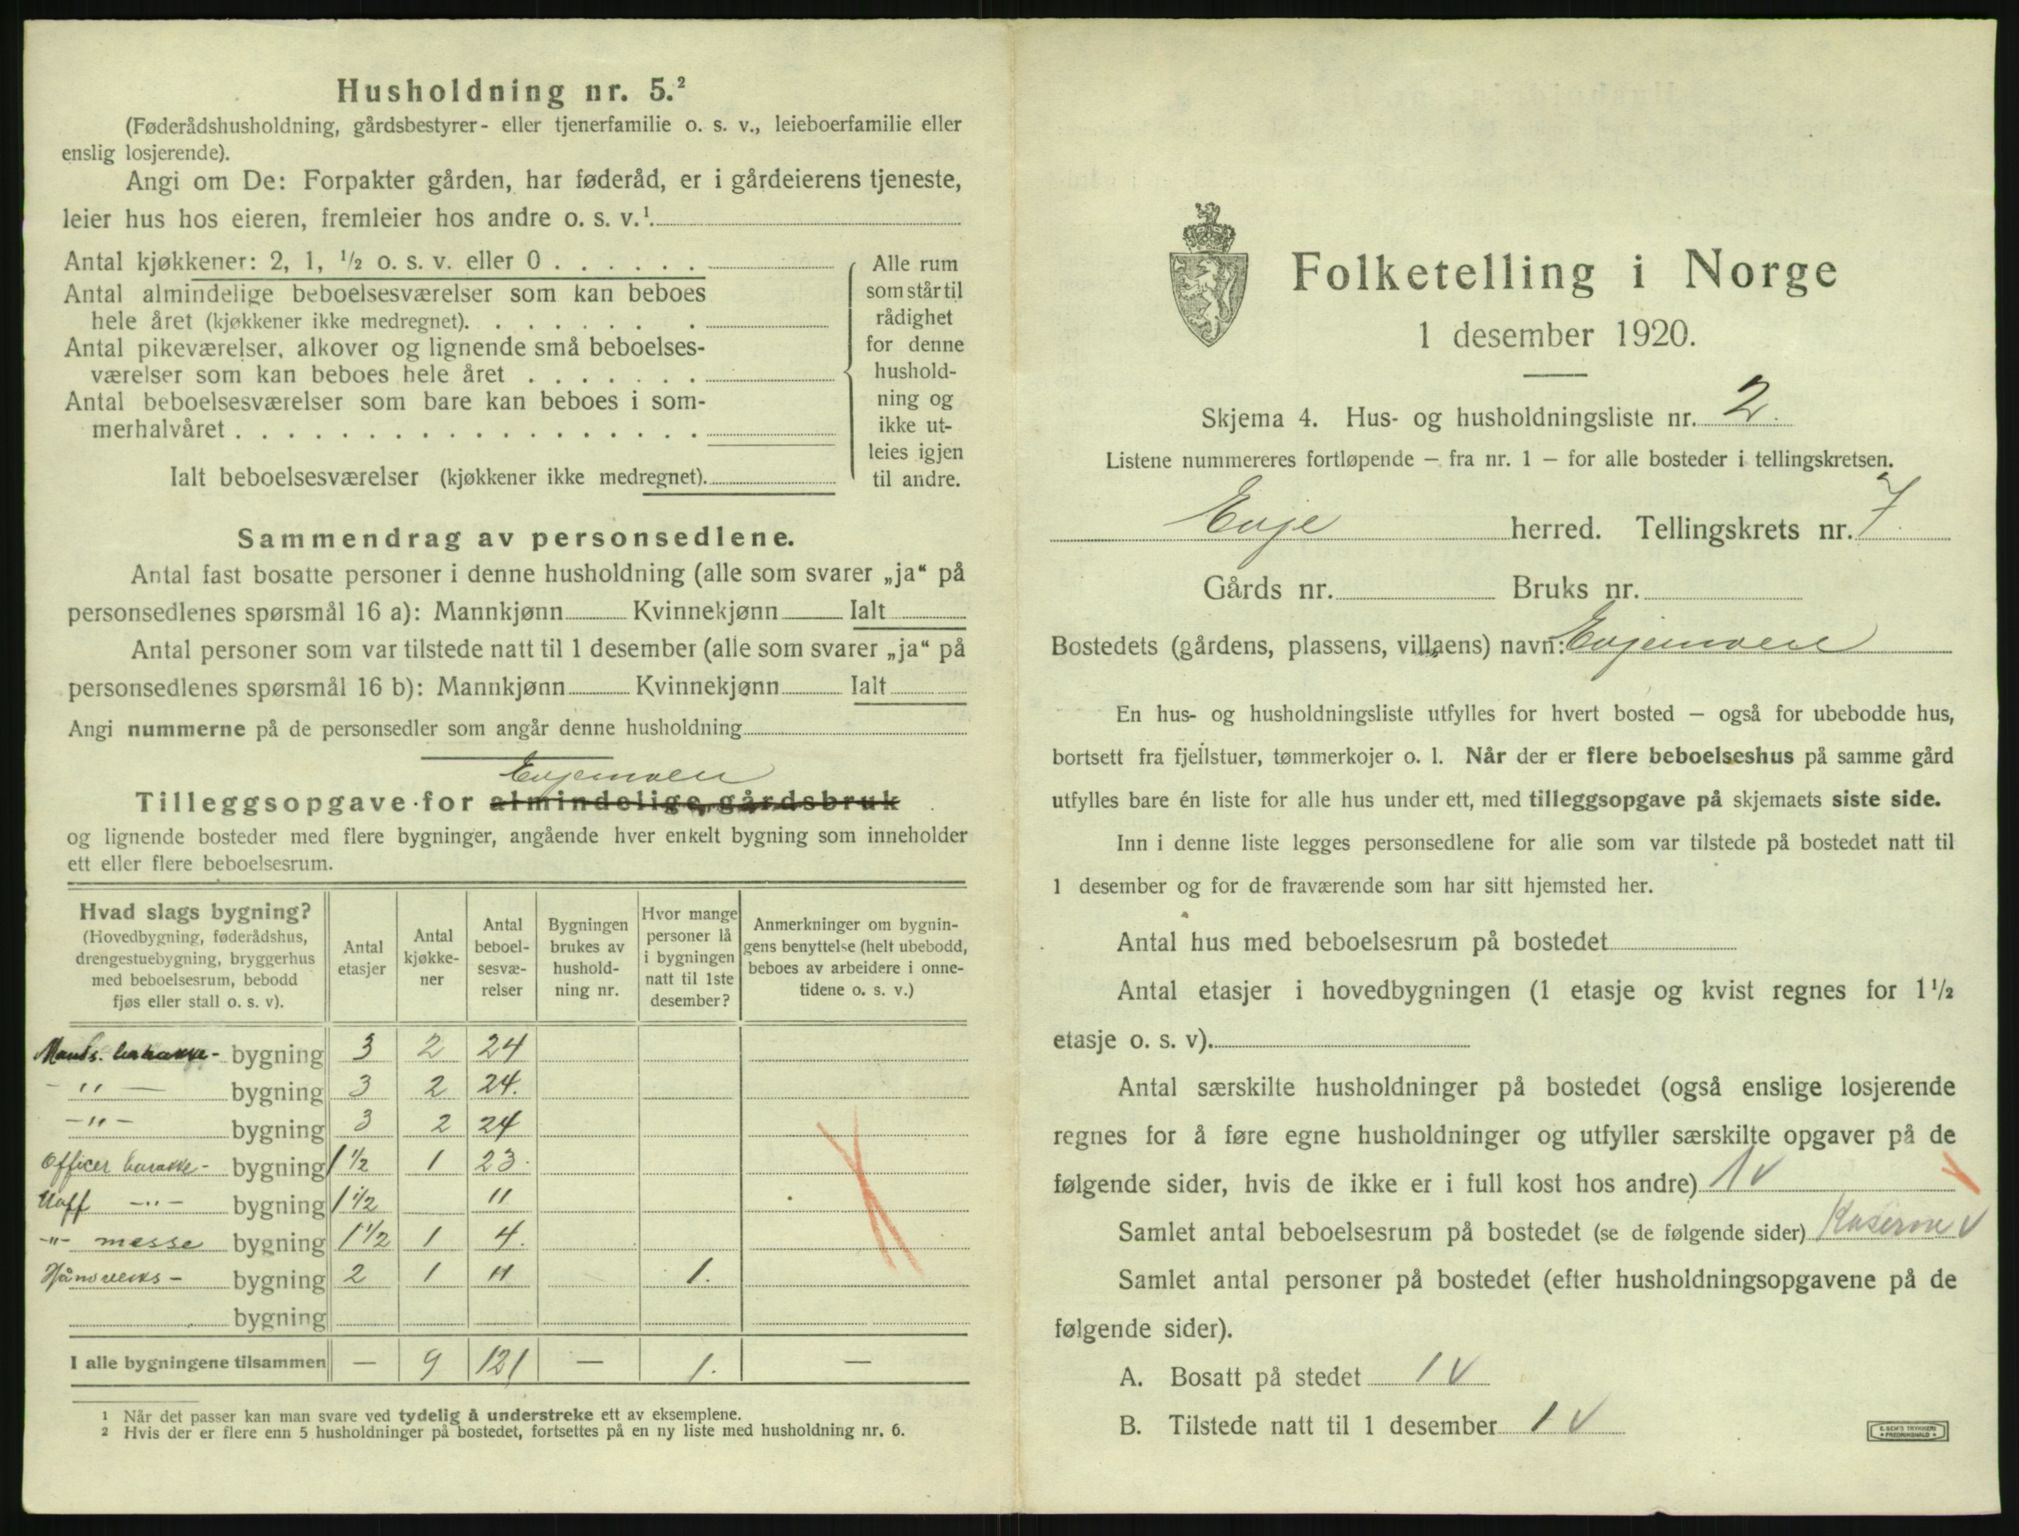 Husholdning nr. 5.²
(Føderådshusholdning, gårdsbestyrer- eller tjenerfamilie o. s. v., leieboerfamilie eller
enslig losjerende).
Angi om De: Forpakter gården, har føderåd, er i gårdeierens tjeneste,
leier hus hos eieren, fremleier hos andre o. s. v.¹
Antal kjøkkener: 2, 1, ½ o. s. v. eller 0 . . . . . .
Antal almindelige beboelsesværelser som kan beboes
hele året (kjøkkener ikke medregnet). . . . . . . .
Antal pikeværelser, alkover og lignende små beboelses-
værelser som kan beboes hele året . . . . . . .
Antal beboelsesværelser som bare kan beboes i som-
merhalvåret . . . . . . . . . . . . . . . . . .
Ialt beboelsesværelser (kjøkkener ikke medregnet).
Alle rum
som står til
rådighet
for denne
hushold-
ning og
ikke ut-
leies igjen
til andre.
Sammendrag av personsedlene.
Antal fast bosatte personer i denne husholdning (alle som svarer „ja“ på
personsedlenes spørsmål 16 a): Mannkjønn Kvinnekjønn Ialt
Antal personer som var tilstede natt til 1 desember (alle som svarer „ja“ på
personsedlenes spørsmål 16 b): Mannkjønn Kvinnekjønn Ialt
Angi nummerne på de personsedler som angår denne husholdning
Evjemoen
Tilleggsopgave for almindelige gårdsbruk
og lignende bosteder med flere bygninger, angående hver enkelt bygning som inneholder
ett eller flere beboelsesrum.
Hvad slags bygning?
(Hovedbygning, føderådshus,
drengestuebygning, bryggerhus
med beboelsesrum, bebodd
fjøs eller stall o. s. v).
Antal
etasjer
Antal
kjøkke-
ner
Antal
beboel-
sesvæ-
relser
Bygningen
brukes av
hushold-
ning nr.
Hvor mange
personer lå
i bygningen
natt til 1ste
desember?
Anmerkninger om bygnin-
gens benyttelse (helt ubebodd,
beboes av arbeidere i onne-
tidene o. s. v.)
Mands. barakke- bygning 3 2 24
- " - bygning 3 2 24.
- " - bygning 3 2 24
Officer barakke- bygning 1½ 1 23.
Uoff - " - bygning 1½ 11
- " - messe bygning 1½ 1 4.
Håndverks- bygning 2 1 11 1.
bygning
I alle bygningene tilsammen — 9 121 — 1. —
¹ Når det passer kan man svare ved tydelig å understreke ett av eksemplene.
² Hvis der er flere enn 5 husholdninger på bostedet, fortsettes på en ny liste med husholdning nr. 6.
Folketelling i Norge
1 desember 1920.
Skjema 4. Hus- og husholdningsliste nr. 2.
Listene nummereres fortløpende — fra nr. 1 — for alle bosteder i tellingskretsen.
Evje herred. Tellingskrets nr. 7.
Gårds nr. Bruks nr.
Bostedets (gårdens, plassens, villaens) navn: Evjemoen
En hus- og husholdningsliste utfylles for hvert bosted — også for ubebodde hus,
bortsett fra fjellstuer, tømmerkojer o. l. Når der er flere beboelseshus på samme gård
utfylles bare én liste for alle hus under ett, med tilleggsopgave på skjemaets siste side.
Inn i denne liste legges personsedlene for alle som var tilstede på bostedet natt til
1 desember og for de fraværende som har sitt hjemsted her.
Antal hus med beboelsesrum på bostedet
Antal etasjer i hovedbygningen (1 etasje og kvist regnes for 1½
etasje o. s. v).
Antal særskilte husholdninger på bostedet (også enslige losjerende
regnes for å føre egne husholdninger og utfyller særskilte opgaver på de
følgende sider, hvis de ikke er i full kost hos andre) 1 v
Samlet antal beboelsesrum på bostedet (se de følgende sider) Kaserne v
Samlet antal personer på bostedet (efter husholdningsopgavene på de
følgende sider).
A. Bosatt på stedet 1 v
B. Tilstede natt til 1 desember 1 v
E. SEM'S TRYKKERI
FREDRIKSHALD